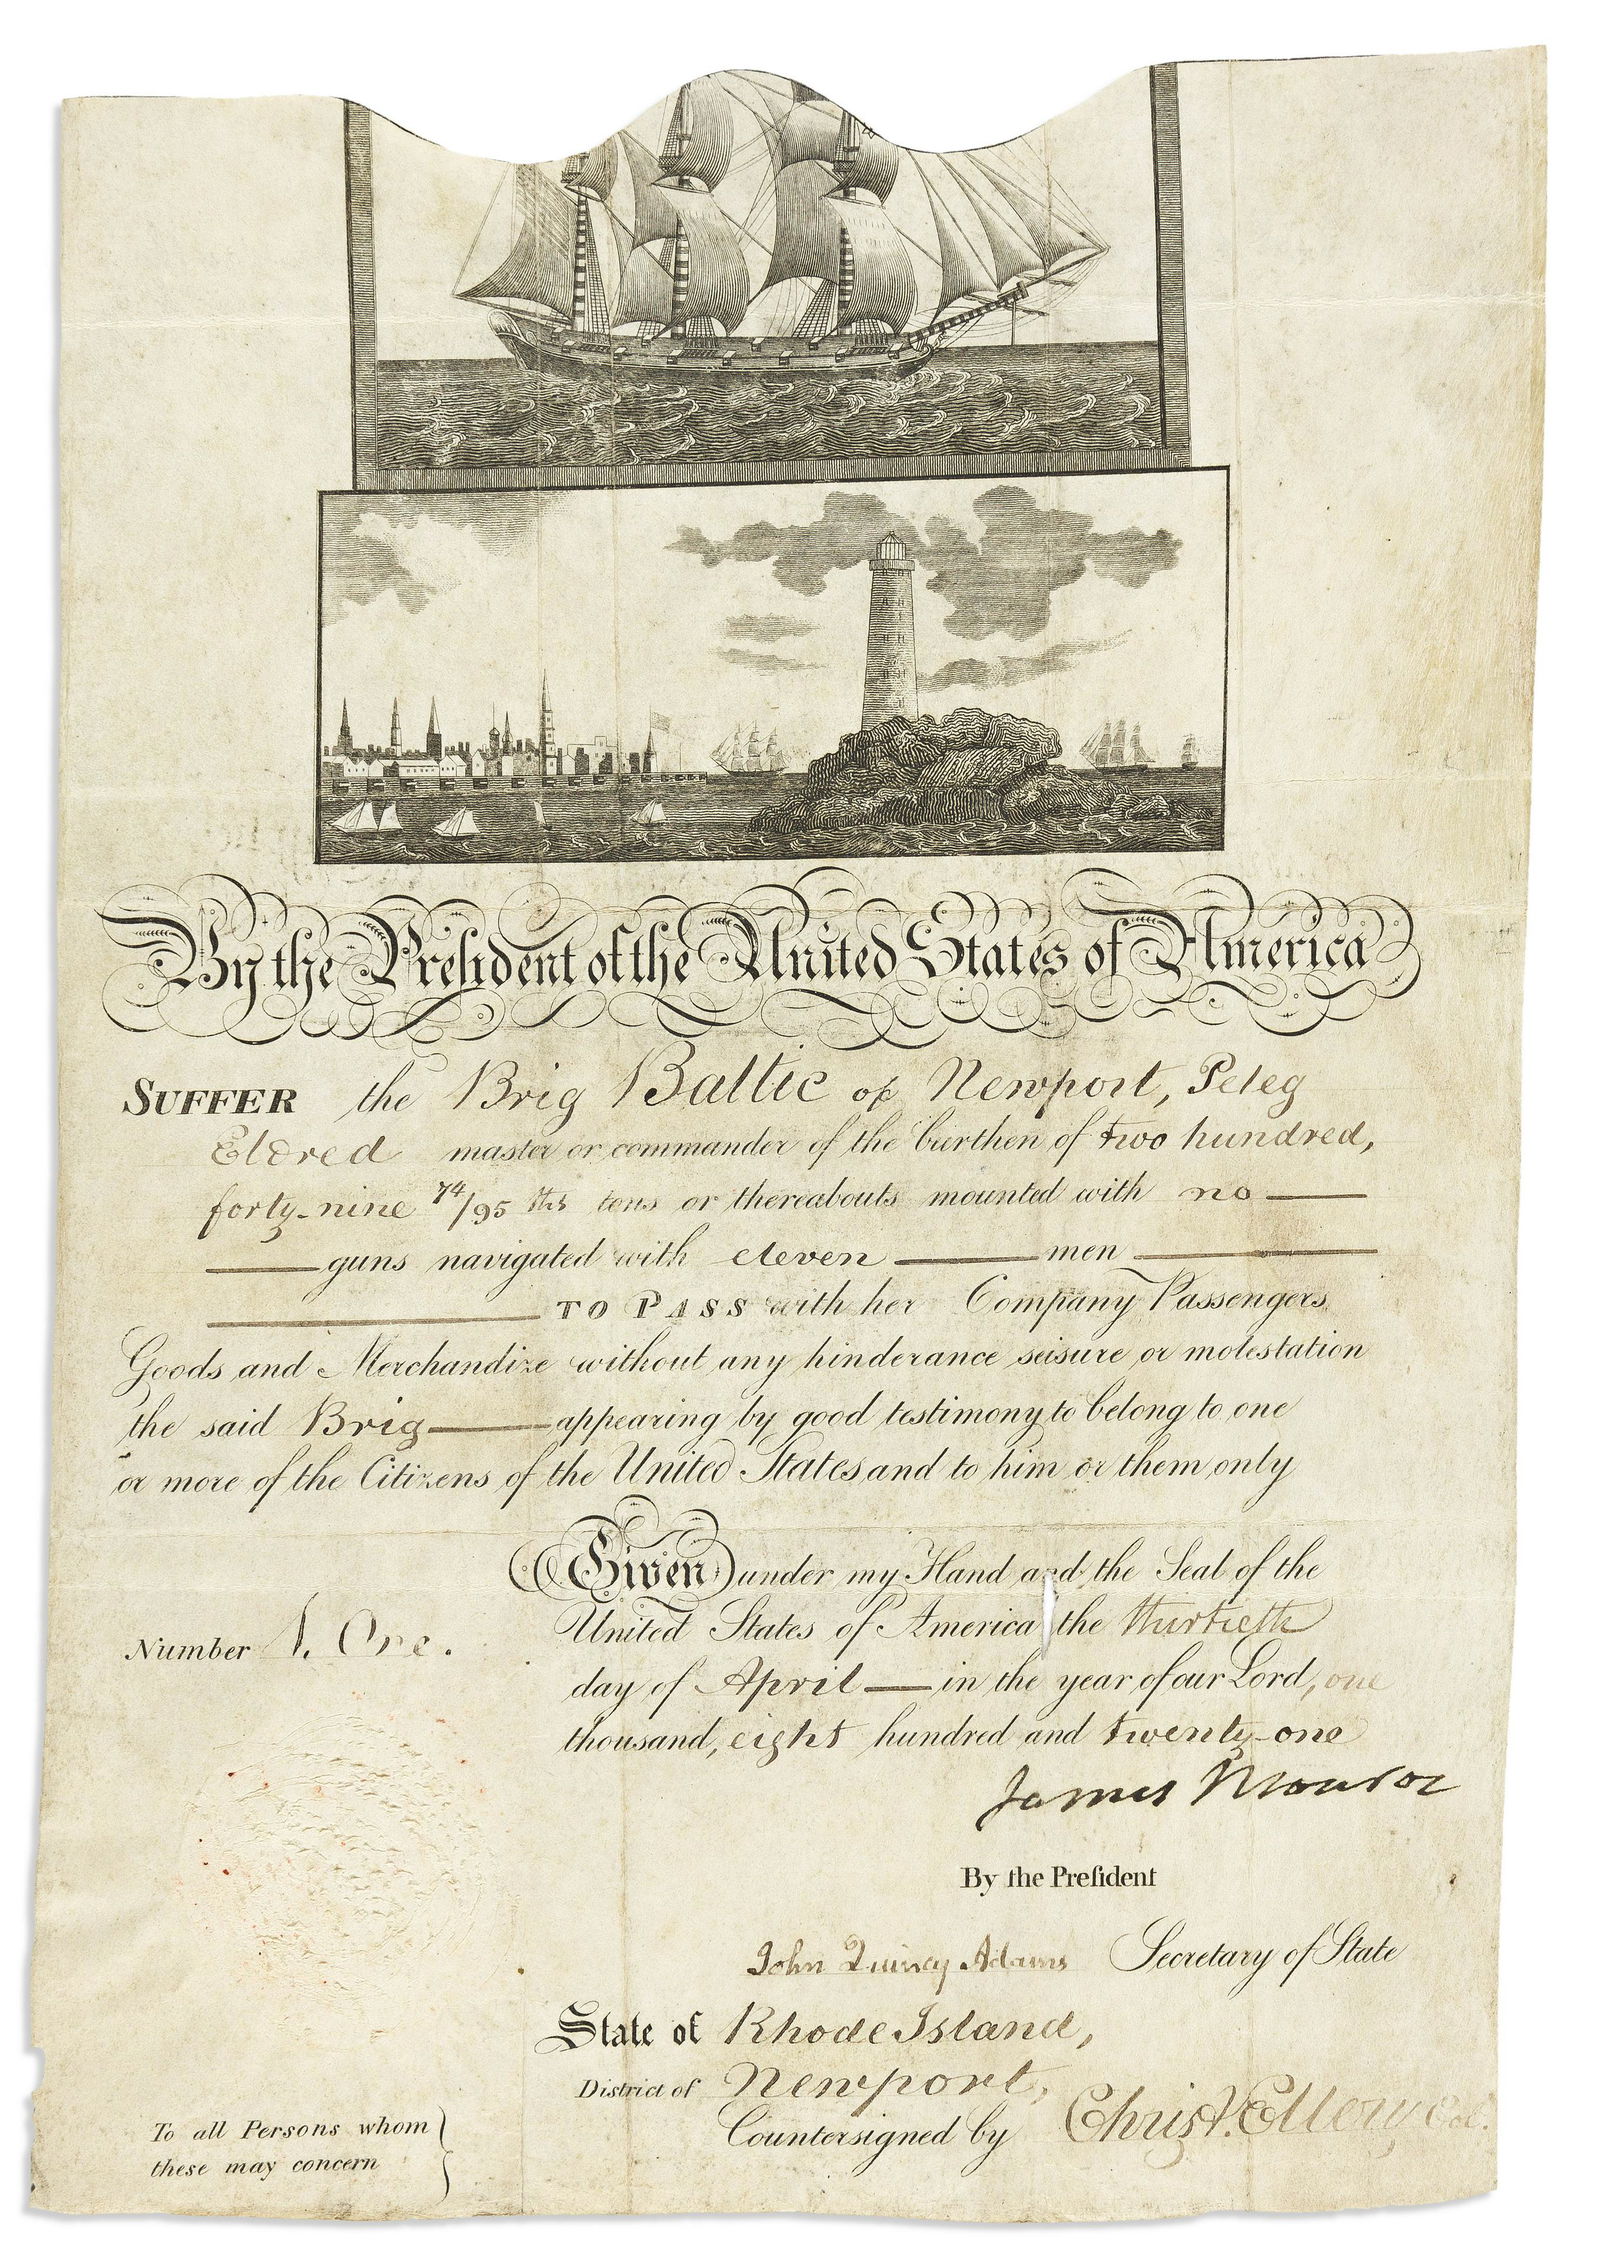 By the President of the United States of America
SUFFER the Brig Baltic of Newport, Peleg
Eldred master or commander of the burthen of two hundred,
forty-nine 74/95 ths tons or thereabouts mounted with no
guns navigated with eleven men
TO PASS with her Company Passengers
Goods and Merchandize without any hinderance seisure or molestation
the said Brig appearing by good testimony to belong to one
or more of the Citizens of the United States and to him or them only
Given under my Hand and the Seal of the
United States of America the thirtieth
Number 1. One.
day of April in the year of our Lord, one
thousand, eight hundred and twenty-one
James Monroe
By the Preſident
John Quincy Adams Secretary of State
State of Rhode Island,
District of Newport,
Countersigned by Christ. Ellery Col.
To all Persons whom
these may concern